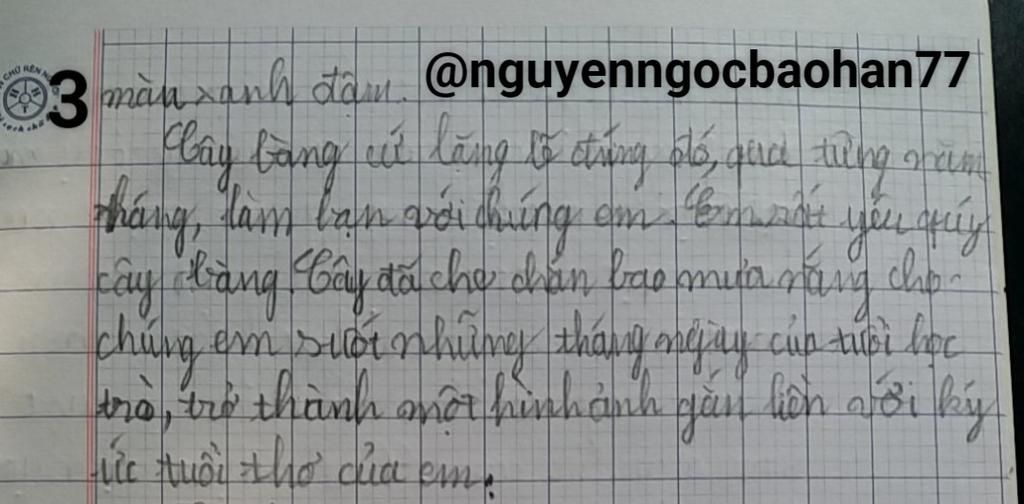 @nguyenngocbaohan77
3 màu xanh đậm.
Cây bàng cứ lặng lẽ đứng đó, qua từng năm
tháng, làm bạn với chúng em. Em rất yêu quý
cây bàng. Cây đã che chắn bao mưa nắng cho
chúng em suốt những tháng ngày của tuổi học
trò, trở thành một hình ảnh gắn liền với ký
ức tuổi thơ của em.